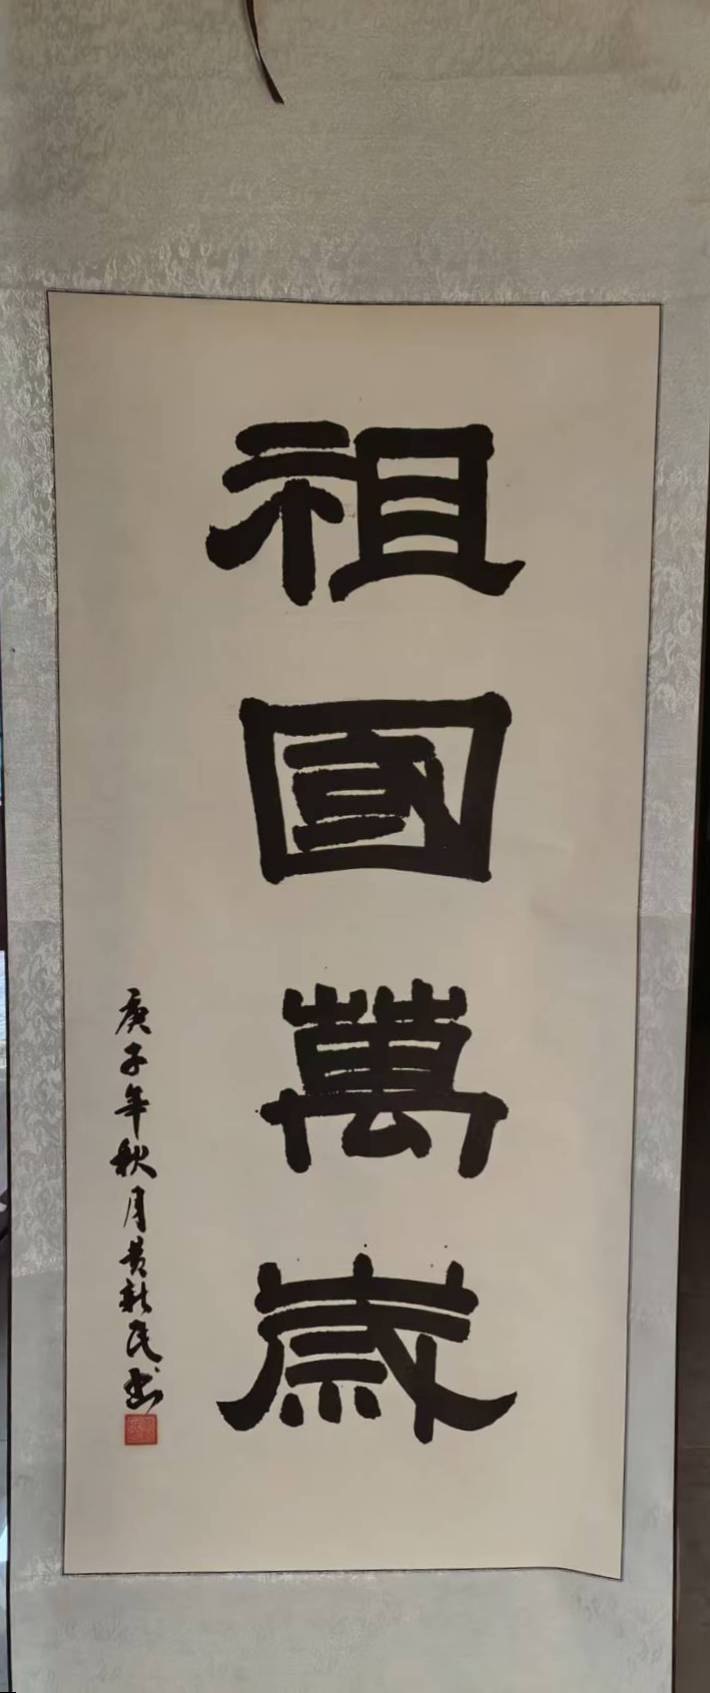 祖國萬歲
庚子年秋月黄新民书